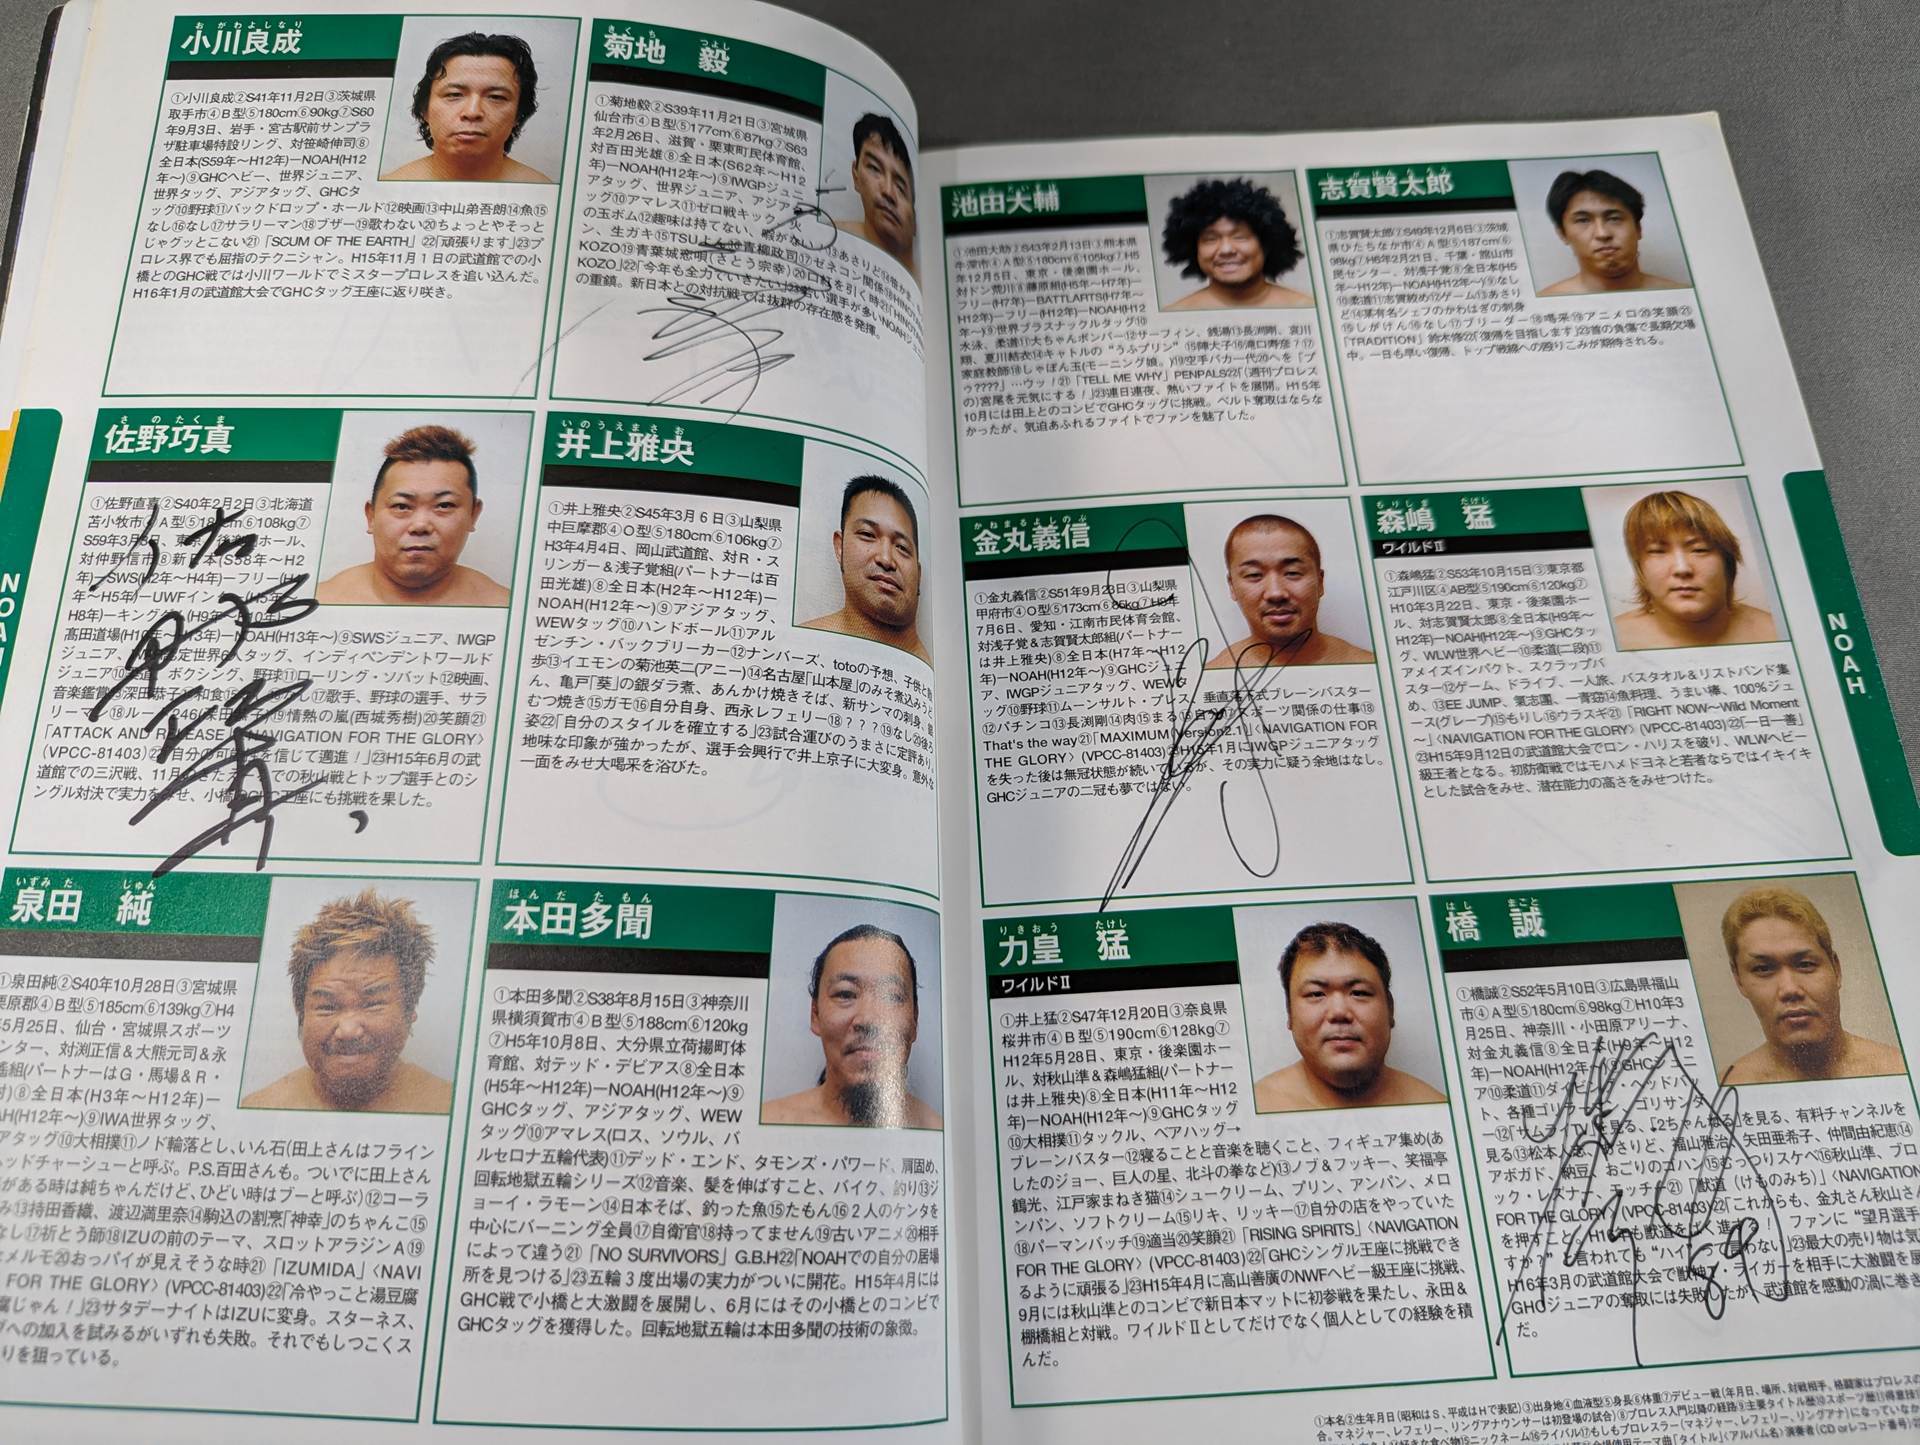 おがわよしなり
小川良成
①小川良成②S41年11月2日③茨城県
取手市④B型⑤180cm⑥90kg⑦S60
年9月3日、岩手・宮古駅前サンプラ
ザ駐車場特設リング、対笹崎伸司⑧
全日本(S59年〜H12年)ーNOAH(H12
年〜)⑨GHCヘビー、世界ジュニア、
世界タッグ、アジアタッグ、GHCタ
ッグ⑩野球⑪バックドロップ・ホールド⑫映画⑬中山弟吾朗⑭魚⑮
なし⑯なし⑰サラリーマン⑱ブザー⑲歌わない⑳ちょっとやそっと
じゃグッとこない㉑「SCUM OF THE EARTH」㉒「頑張ります」㉓プ
ロレス界でも屈指のテクニシャン。H15年11月1日の武道館での小
橋とのGHC戦では小川ワールドでミスタープロレスを追い込んだ。
H16年1月の武道館大会でGHCタッグ王座に返り咲き。
きくち つよし
菊地 毅
①菊地毅②S39年11月21日③宮城県
仙台市④B型⑤177cm⑥87kg⑦S63
年2月26日、滋賀・栗東町民体育館、
対百田光雄⑧全日本(S62年〜H12
年)ーNOAH(H12年〜)⑨IWGPジュニ
アタッグ、世界ジュニア、アジアタ
ッグ⑩アマレス⑪ゼロ戦キック、火
の玉ボム⑫趣味は持てない、暇がない
⑬あさりど
ン、生ガキ⑮TSUよん⑯青柳政司⑰ゼネコン関係⑱
KOZO⑲青葉城恋唄(さとう宗幸)⑳口紅を引く時㉑「HINOTAMA
KOZO」㉒「今年も全力でいきたい」㉓若い選手が多いNOAHジュニア
の重鎮。新日本との対抗戦では抜群の存在感を発揮。
さのたくま
佐野巧真
①佐野直喜②S40年2月2日③北海道
苫小牧市④A型⑤18 cm⑥108kg⑦
S59年3月3日、東京・後楽園ホール、
対仲野信市⑧新日本(S58年〜H2
年)ーSWS(H2年〜H4年)ーフリー(H4
年〜H5年)ーUWFインター(H5年〜
H8年)ーキングダム(H9年〜H10年)ー
高田道場(H10年〜H13年)ーNOAH(H13年〜)⑨SWSジュニア、IWGP
ジュニア、IWGP認定世界6人タッグ、インディペンデントワールド
ジュニア⑩柔道、ボクシング、野球⑪ローリング・ソバット⑫映画、
音楽鑑賞⑬深田恭子⑭和食⑮ ⑯なし⑰歌手、野球の選手、サラ
リーマン⑱ルート246(深田恭子)⑲情熱の嵐(西城秀樹)⑳笑顔㉑
「ATTACK AND RELEASE」〈NAVIGATION FOR THE GLORY〉
(VPCC-81403)㉒「自分の可能性を信じて邁進！」㉓H15年6月の武
道館での三沢戦、11月 での秋山戦とトップ選手とのシ
ングル対決で実力をみせ、小橋のGHC王座にも挑戦を果した。
いのうえまさお
井上雅央
①井上雅央②S45年3月6日③山梨県
中巨摩郡④O型⑤180cm⑥106kg⑦
H3年4月4日、岡山武道館、対R・ス
リンガー＆浅子覚組(パートナーは百
田光雄)⑧全日本(H2年〜H12年)ー
NOAH(H12年〜)⑨アジアタッグ、
WEWタッグ⑩ハンドボール⑪アル
ゼンチン・バックブリーカー⑫ナンバーズ、totoの予想、子供と散
歩⑬イエモンの菊池英二(アニー)⑭名古屋「山本屋」のみそ煮込みうど
ん、亀戸「葵」の銀ダラ煮、あんかけ焼きそば、新サンマの刺身、銀
むつ焼き⑮ガモ⑯自分自身、西永レフェリー⑱？？？⑲なし⑳後ろ
姿㉒「自分のスタイルを確立する」㉓試合運びのうまさに定評あり。
地味な印象が強かったが、選手会興行で井上京子に大変身。意外な
一面をみせ大喝采を浴びた。
いずみだ じゅん
泉田 純
①泉田純②S40年10月28日③宮城県
栗原郡④B型⑤185cm⑥139kg⑦H4
年5月25日、仙台・宮城県スポーツ
ンター、対渕正信＆大熊元司＆永
組(パートナーはG・馬場＆R・
)⑧全日本(H3年〜H12年)ー
AH(H12年〜)⑨IWA世界タッグ、
アタッグ⑩大相撲⑪ノド輪落とし、いん石(田上さんはフライン
ッドチャーシューと呼ぶ。P.S.百田さんも。ついでに田上さん
がある時は純ちゃんだけど、ひどい時はブーと呼ぶ)⑫コーラ
み⑬持田香織、渡辺満里奈⑭駒込の割烹「神幸」のちゃんこ⑮
なし⑰祈とう師⑱IZUの前のテーマ、スロットアラジンA⑲
メルモ⑳おっパイが見えそうな時㉑「IZUMIDA」〈NAVI
FOR THE GLORY〉(VPCC-81403)㉒「冷やっこと湯豆腐
腐じゃん！」㉓サタデーナイトはIZUに変身。スターネス、
への加入を試みるがいずれも失敗。それでもしつこくス
りを狙っている。
ほんだたもん
本田多聞
①本田多聞②S38年8月15日③神奈川
県横須賀市④B型⑤188cm⑥120kg
⑦H5年10月8日、大分県立荷揚町体
育館、対テッド・デビアス⑧全日本
(H5年〜H12年)ーNOAH(H12年〜)⑨
GHCタッグ、アジアタッグ、WEW
タッグ⑩アマレス(ロス、ソウル、バ
ルセロナ五輪代表)⑪デッド・エンド、タモンズ・パワード、肩固め、
回転地獄五輪シリーズ⑫音楽、髪を伸ばすこと、バイク、釣り⑬ジ
ョーイ・ラモーン⑭日本そば、釣った魚⑮たもん⑯2人のケンタを
中心にバーニング全員⑰自衛官⑱持ってません⑲古いアニメ⑳相手
によって違う㉑「NO SURVIVORS」G.B.H㉒「NOAHでの自分の居場
所を見つける」㉓五輪3度出場の実力がついに開花。H15年4月には
GHC戦で小橋と大激闘を展開し、6月にはその小橋とのコンビで
GHCタッグを獲得した。回転地獄五輪は本田多聞の技術の象徴。
池田大輔
①池田大助②S43年2月13日③熊本県
牛深市④A型⑤180cm⑥105kg⑦H5
年12月5日、東京・後楽園ホール、
対ドン荒川⑧藤原組(H5年〜H7年)ー
フリー(H7年)ーBATTLARTS(H7年〜
H12年)ーフリー(H12年)ーNOAH(H12
年〜)⑨世界ブラスナックルタッグ⑩
水泳、柔道⑪大ちゃんボンバー⑫サーフィン、銭湯⑬長渕剛、哀川
翔、夏川結衣⑭キャトルの“うふプリン”⑮陣大子⑯滝口寿彦？⑰
家庭教師⑱しゃぼん玉(モーニング娘。)⑲空手バカ一代⑳へを「プ
ゥ????」…ウッ！㉑「TELL ME WHY」PENPALS㉒「(週刊プロレス
の)宮尾を元気にする！」㉓連日連夜、熱いファイトを展開。H15年
10月には田上とのコンビでGHCタッグに挑戦。ベルト奪取はならな
かったが、気迫あふれるファイトでファンを魅了した。
しがけんたろう
志賀賢太郎
①志賀賢太郎②S49年12月6日③茨城
県ひたちなか市④A型⑤187cm⑥
98kg⑦H6年2月21日、千葉・館山市
民センター、対浅子覚⑧全日本(H5
年〜H12年)ーNOAH(H12年〜)⑨なし
⑩柔道⑪志賀絞め⑫ゲーム⑬あさり
ど⑭某有名シェフのかわはぎの刺身
⑮しがけん⑯なし⑰ブリーダー⑱喝采⑲アニメロ⑳笑顔㉑
「TRADITION」鈴木修㉒「復帰を目指します」㉓首の負傷で長期欠場
中。一日も早い復帰、トップ戦線への殴りこみが期待される。
かねまるよしのぶ
金丸義信
①金丸義信②S51年9月23日③山梨県
甲府市④O型⑤173cm⑥85kg⑦H8年
7月6日、愛知・江南市民体育会館、
対浅子覚＆志賀賢太郎組(パートナー
は井上雅央)⑧全日本(H7年〜H12
年)ーNOAH(H12年〜)⑨GHCジュニ
ア、IWGPジュニアタッグ、WEWタ
ッグ⑩野球⑪ムーンサルト・プレス、垂直落下式ブレーンバスター
⑫パチンコ⑬長渕剛⑭肉⑮まる⑯自分⑰スポーツ関係の仕事⑱
That's the way㉑「MAXIMUM (version2.1)」〈NAVIGATION FOR
THE GLORY〉(VPCC-81403)㉓H15年1月にIWGPジュニアタッグ
を失った後は無冠状態が続いているが、その実力に疑う余地はなし。
GHCジュニアの二冠も夢ではない。
もりしま たけし
森嶋 猛
ワイルドⅡ
①森嶋猛②S53年10月15日③東京都
江戸川区④AB型⑤190cm⑥120kg⑦
H10年3月22日、東京・後楽園ホー
ル、対志賀賢太郎⑧全日本(H9年〜
H12年)ーNOAH(H12年〜)⑨GHCタ
ッグ、WLW世界ヘビー⑩柔道(二段)⑪
アメイズインパクト、スクラップバ
スター⑫ゲーム、ドライブ、一人旅、バスタオル＆リストバンド集
め、⑬EE JUMP、氣志團、一青窈⑭魚料理、うまい棒、100%ジュ
ース(グレープ)⑮もりし⑯ウラスギ㉑「RIGHT NOW〜Wild Moment
〜」〈NAVIGATION FOR THE GLORY〉(VPCC-81403)㉒「一日一善」
㉓H15年9月12日の武道館大会でロン・ハリスを破り、WLWヘビー
級王者となる。初防衛戦ではモハメドヨネと若者ならではイキイキ
とした試合をみせ、潜在能力の高さをみせつけた。
りきおう たけし
力皇 猛
ワイルドⅡ
①井上猛②S47年12月20日③奈良県
桜井市④B型⑤190cm⑥128kg⑦
H12年5月28日、東京・後楽園ホー
ル、対秋山準＆森嶋猛組(パートナー
は井上雅央)⑧全日本(H11年〜H12
年)ーNOAH(H12年〜)⑨GHCタッグ
⑩大相撲⑪タックル、ベアハッグ→
ブレーンバスター⑫寝ることと音楽を聴くこと、フィギュア集め(あ
したのジョー、巨人の星、北斗の拳など)⑬ノブ＆フッキー、笑福亭
鶴光、江戸家まねき猫⑭シュークリーム、プリン、アンパン、メロ
ンパン、ソフトクリーム⑮リキ、リッキー⑰自分の店をやっていた
⑱パーマンバッチ⑲適当⑳笑顔㉑「RISING SPIRITS」〈NAVIGATION
FOR THE GLORY〉(VPCC-81403)㉒「GHCシングル王座に挑戦でき
るように頑張る」㉓H15年4月に高山善廣のNWFヘビー級王座に挑戦、
9月には秋山準とのコンビで新日本マットに初参戦を果たし、永田＆
棚橋組と対戦。ワイルドⅡとしてだけでなく個人としての経験を積
んだ。
はし まこと
橋 誠
①橋誠②S52年5月10日③広島県福山
市④A型⑤180cm⑥98kg⑦H10年3
月25日、神奈川・小田原アリーナ、
対金丸義信⑧全日本(H9年〜H12
年)ーNOAH(H12年〜)⑨GHCジュニ
ア⑩柔道⑪ダイビング・ヘッドバッ
ト、各種ゴリラーマン、ゴリサンダ
ー⑫「サムライTV」を見る、「2ちゃんねる」を見る、有料チャンネルを
見る⑬松本人志、あさりど、福山雅治、矢田亜希子、仲間由紀恵⑭
アボガド、納豆、おごりのゴハン⑮むっつりスケベ⑯秋山準、ブロ
ック・レスナー、エッチャー㉑「獣道(けものみち)」〈NAVIGATION
FOR THE GLORY〉(VPCC-81403)㉒「これからも、金丸さん秋山さん
を押すこと。H16年も獣道をばく進する！ ファンに“望月選手
すか？”と言われても“ハイ”って言わない」㉓最大の売り物は気
H16年3月の武道館大会で獣神サ・ライガーを相手に大激闘を展
GHCジュニアの奪取には失敗したが、武道館を感動の渦に巻き
だ。
NOAH
NOAH
①本名②生年月日(昭和はS、平成はHで表記)③出身地④血液型⑤身長⑥体重⑦デビュー戦(年月日、場所、対戦相手。格闘家はプロレスの
合。マネジャー、レフェリー、リングアナウンサーは初登場の試合)⑧プロレス入門以降の経路⑨主要タイトル歴⑩スポーツ歴⑪得意技
⑭好きな食べ物⑮ニックネーム⑯ライバル⑰もしもプロレスラー(マネジャー、レフェリー、リングアナ)になっていなか